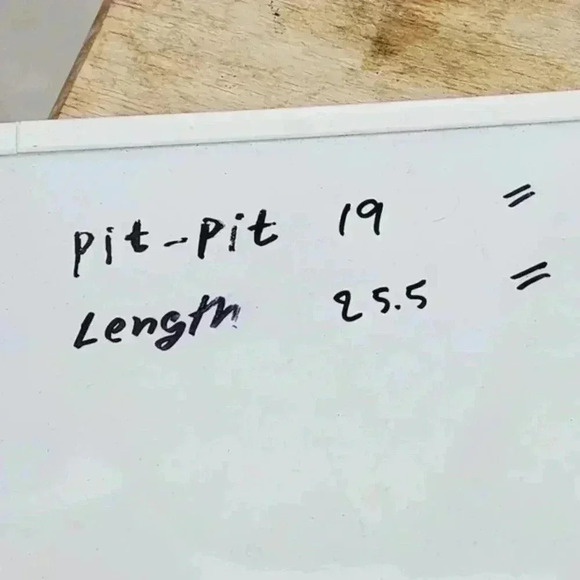 Pit-Pit 19 "
Length 25.5 "